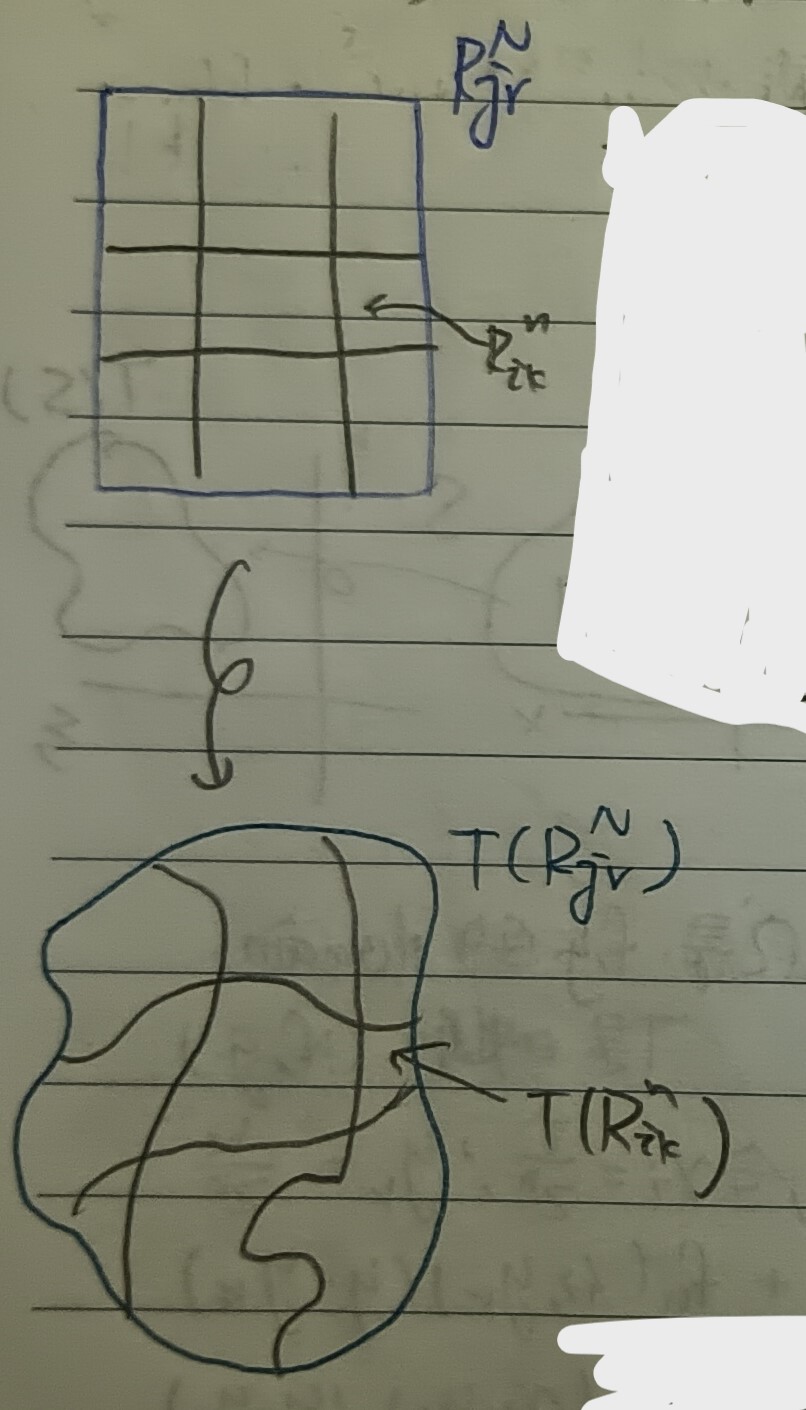 R_{jr}^N
R_{ik}^n
T(R_{jr}^N)
T(R_{ik}^n)